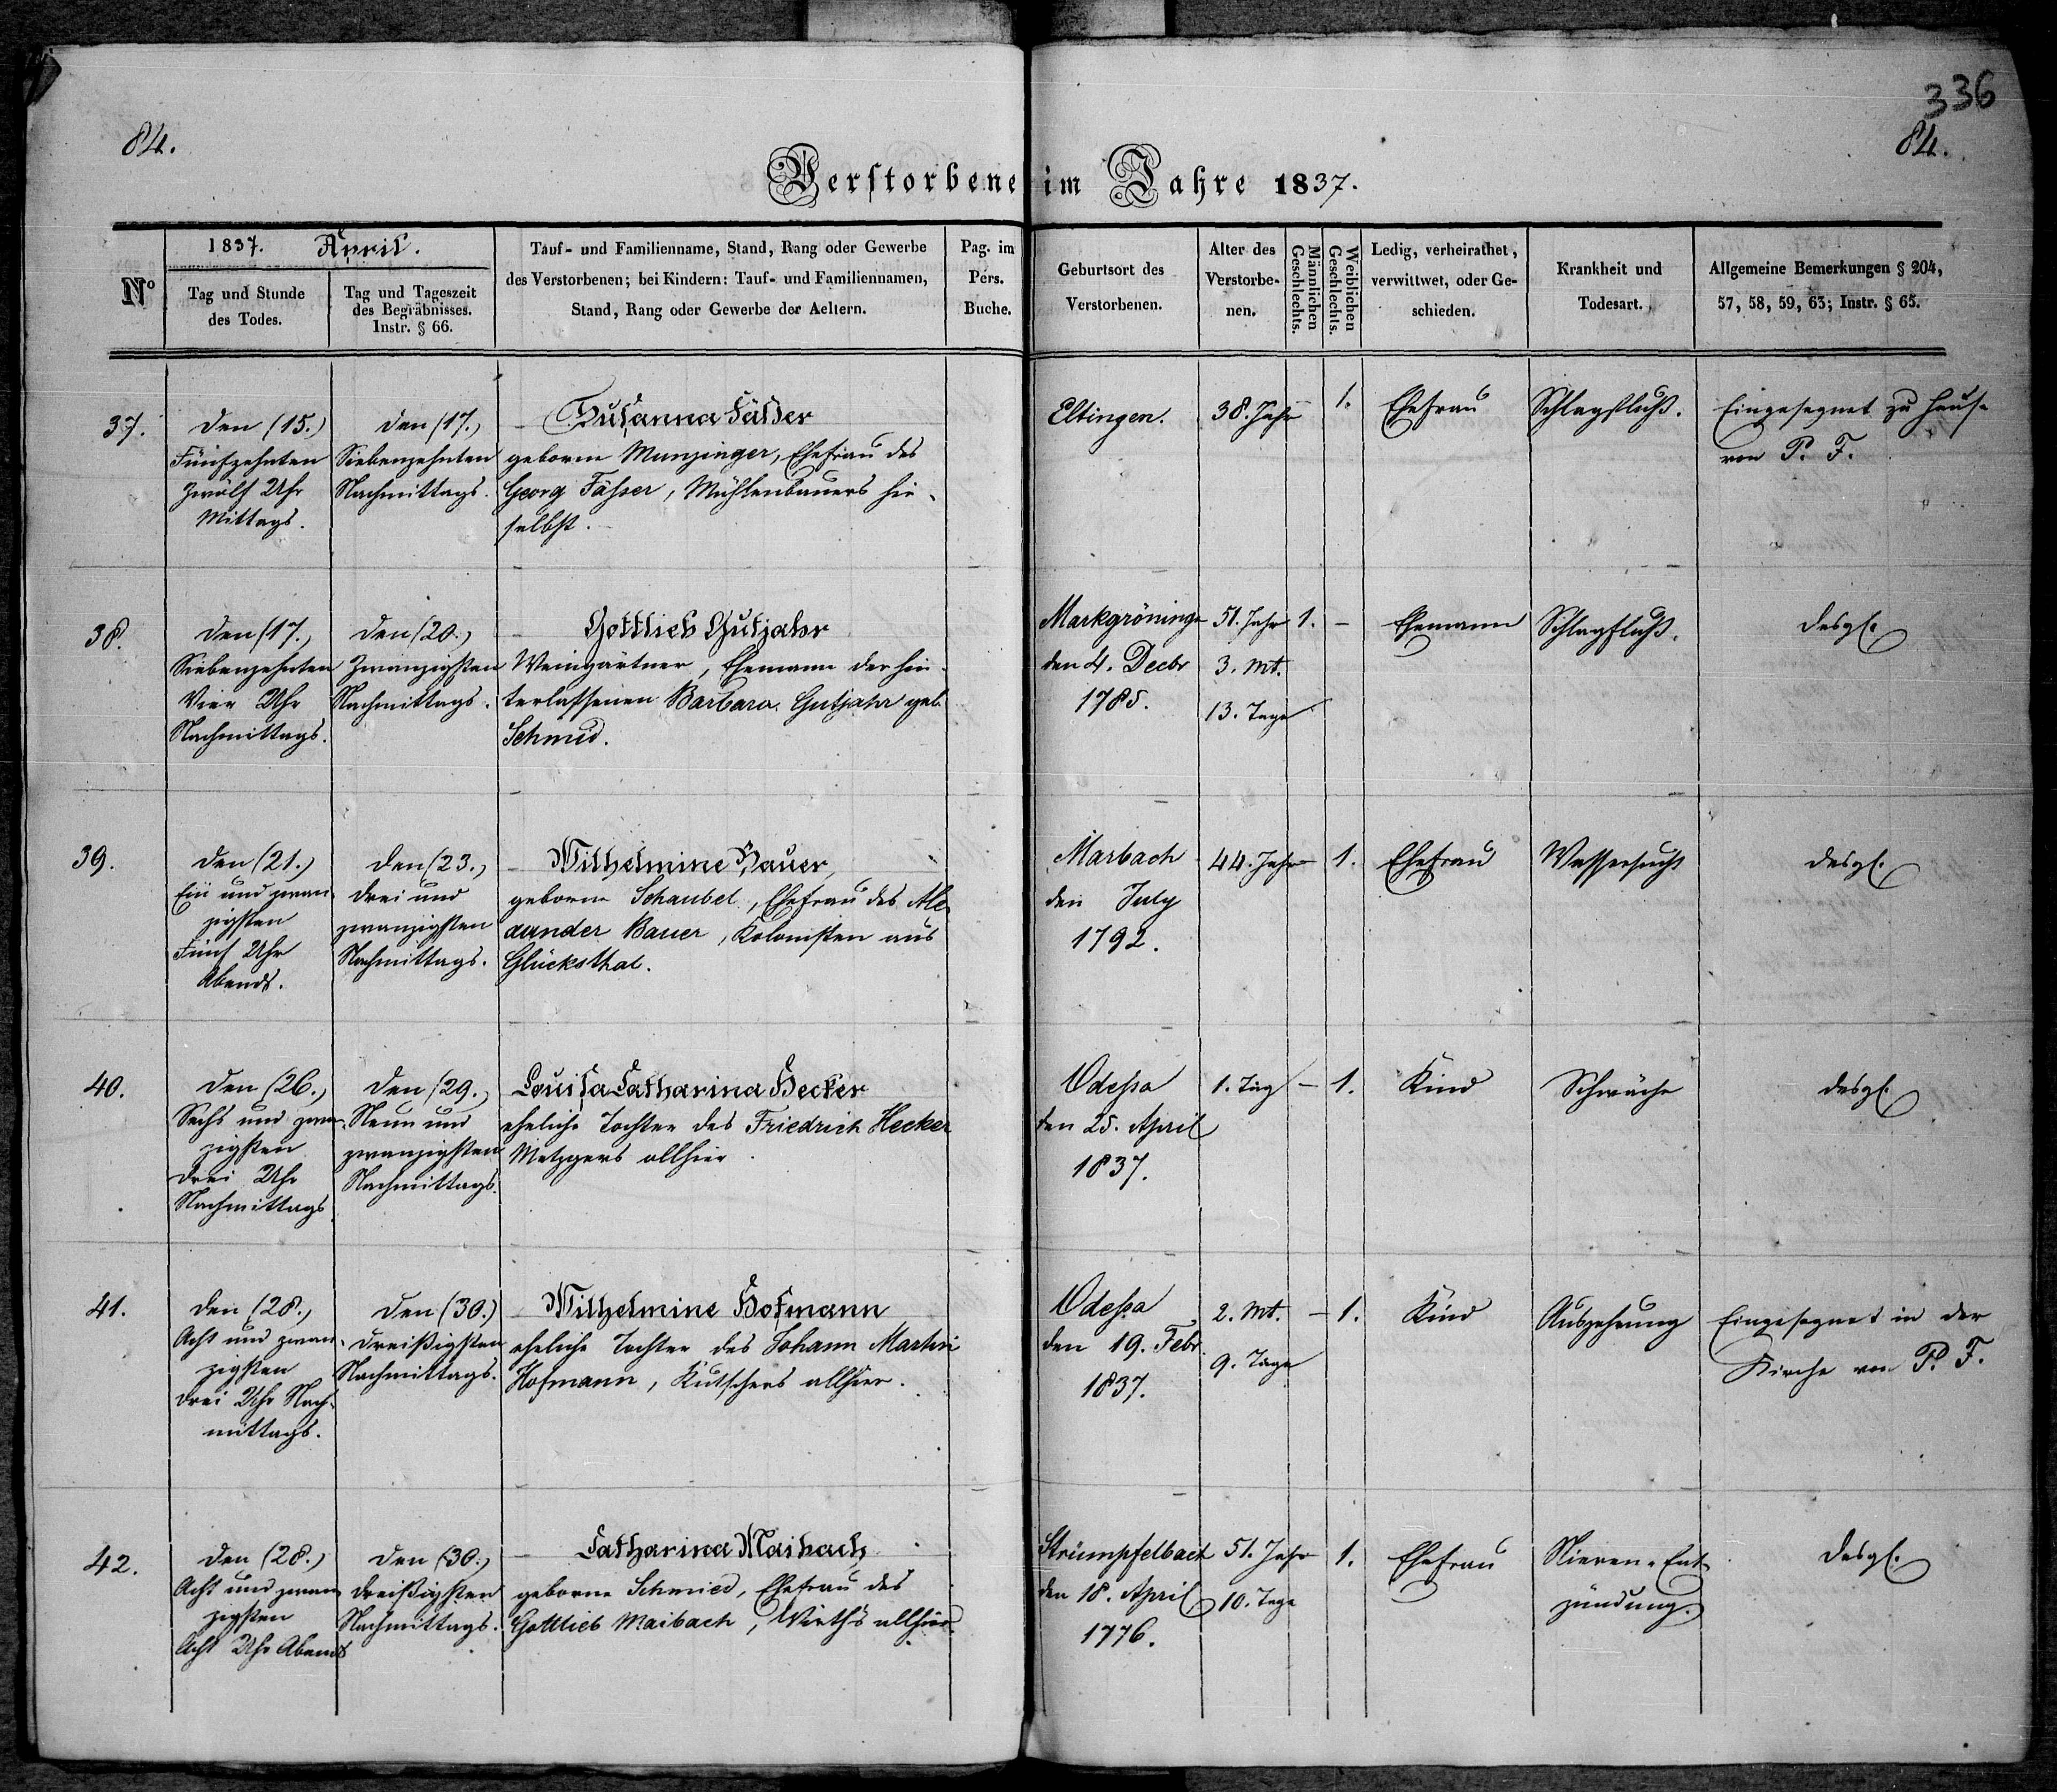 336
84.
84.
Verstorbene im Jahre 1837.
No
1837. April.
Tag und Stunde
des Todes.
Tag und Tageszeit
des Begräbnisses.
Instr. § 66.
Tauf- und Familienname, Stand, Rang oder Gewerbe
des Verstorbenen; bei Kindern: Tauf- und Familiennamen,
Stand, Rang oder Gewerbe der Aeltern.
Pag. im
Pers.
Buche.
Geburtsort des
Verstorbenen.
Alter des
Verstorbe-
nen.
Männlichen
Geschlechts.
Weiblichen
Geschlechts.
Ledig, verheirathet,
verwittwet, oder Ge-
schieden.
Krankheit und
Todesart.
Allgemeine Bemerkungen § 204,
57, 58, 59, 63; Instr. § 65.
37.
den (15.)
Fünfzehnten
Zwölf Uhr
Mittags.
den (17.)
Siebenzehnten
Nachmittags.
Susanna Fässer
geborne Munzinger, Ehefrau des
Georg Fässer, Mühlenbauers hie-
selbst.
Eltingen.
38. Jahr
1.
Ehefrau
Schlagfluß.
Eingesegnet zu Hause
von P. F.
38.
den (17.)
Siebenzehnten
Vier Uhr
Nachmittags.
den (20.)
Zwanzigsten
Nachmittags.
Gottlieb Gutjahr
Weingärtner, Ehemann der hin-
terlassenen Barbara Gutjahr geb.
Schmid.
Markgröninge
den 4. Decbr
1785.
51. Jahr
3. Mt.
13. Tage
1. -
Ehemann
Schlagfluß.
desgl.
39.
den (21.)
Ein und zwan-
zigsten
Fünf Uhr
Abends.
den (23.)
drei und
zwanzigsten
Nachmittags.
Wilhelmine Bauer,
geborne Schaubel, Ehefrau des Ale-
xander Bauer, Kolonisten aus
Glücksthal.
Marbach
den July
1792.
44. Jahr
1.
Ehefrau
Wassersucht
desgl.
40.
den (26.)
Sechs und zwan-
zigsten
drei Uhr
Nachmittags
den (29.)
Neun und
zwanzigsten
Nachmittags.
Louisa Catharina Hecker
eheliche Tochter des Friedrich Hecker
Metzgers allhier.
Odessa
den 25. April
1837.
1. Tag
- 1.
Kind
Schwäche
desgl.
41.
den (28.)
Acht und zwan-
zigsten
drei Uhr Nach-
mittags.
den (30.)
dreißigsten
Nachmittags.
Wilhelmine Hofmann
eheliche Tochter des Johann Martin
Hofmann, Kutschers allhier.
Odessa
den 19. Febr.
1837.
2. Mt.
9. Tage
- 1.
Kind
Auszehrung
Eingesegnet in der
Kirche von P. F.
42.
den (28.)
Acht und zwan-
zigsten
Acht Uhr Abends
den (30.)
dreißigsten
Nachmittags.
Catharina Maibach
geborne Schmied, Ehefrau des
Gottlieb Maibach, Wirths allhier.
Strümpfelbach
den 18. April
1776.
51. Jahr
10. Tage
1.
Ehefrau
Nieren-Ent-
zündung.
desgl.